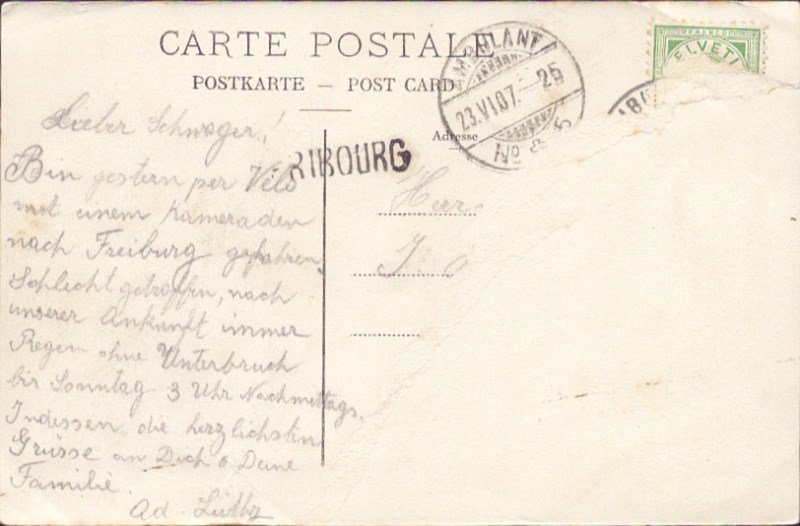 CARTE POSTALE
POSTKARTE – POST CARD
AMBULANT
23.VI.07. – 25
No
FRANCO
HELVETI
RIBOURG
Adresse
Lieber Schwager!
Bin gestern per Velo
mit einem Kameraden
nach Freiburg gefahren.
Schlecht getroffen, nach
unserer Ankunft immer
Regen ohne Unterbruch
bis Sonntag 3 Uhr Nachmittags.
Indessen die herzlichsten
Grüsse an Dich & Deine
Familie.
Ad. Lüthy
Herr
J.